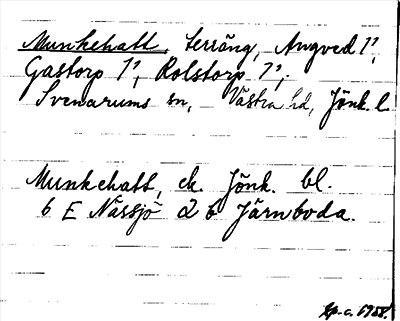 Munkehatt, terräng, Angved 1²,
Gastorp 1², Rolstorp 1²,
Svenarums sn, Västra hd, Jönk. l.
Munkehatt, ek. Jönk. bl.
6 E Nässjö 2 b Järnboda.